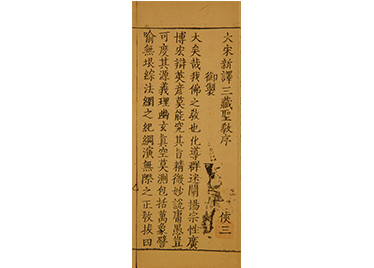 大宋新譯三藏聖教序
俠三
御製
大矣哉我佛之教也化導群迷闡揚宗性廣
博宏辯英彥莫能究其旨精微妙說庸愚豈
可度其源義理幽玄真空莫測包括萬象譬
喻無垠綜法網之紀綱演無際之正教拔四